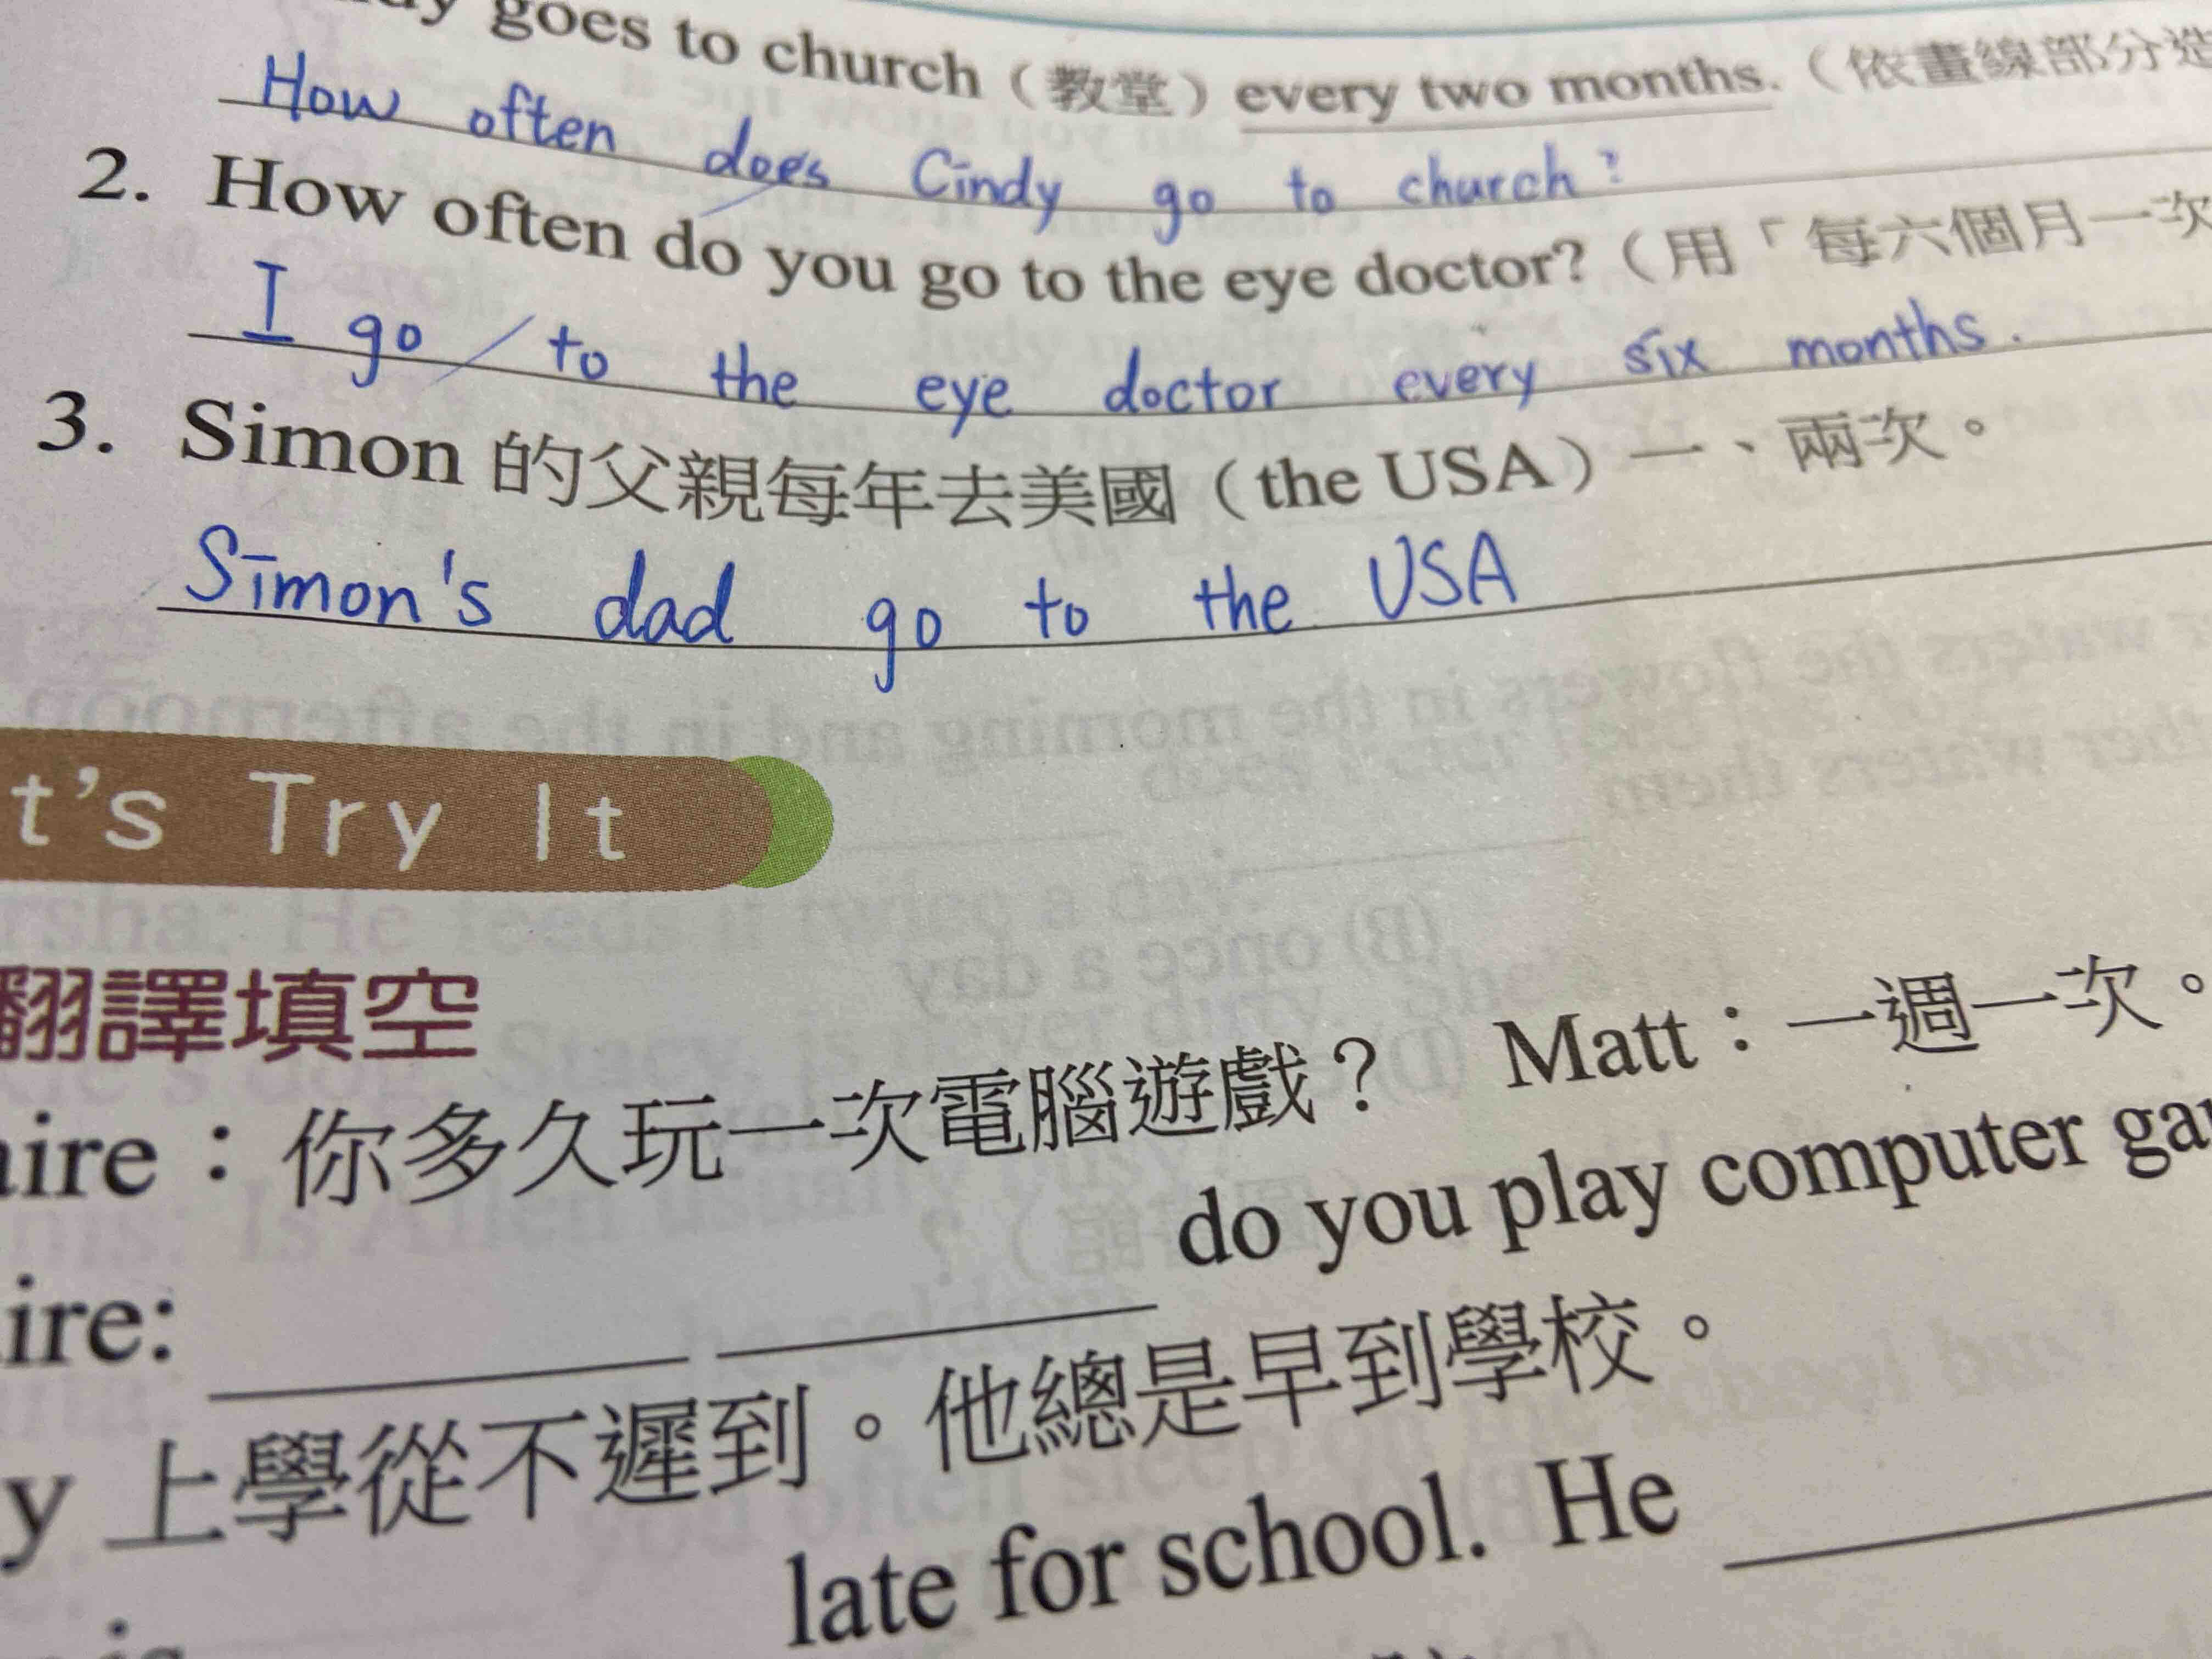 goes to church（教堂）every two months.（依畫線部分造
How often does Cindy go to church?
2. How often do you go to the eye doctor?（用「每六個月一次
I go to the eye doctor every six months.
3. Simon 的父親每年去美國（the USA）一、兩次。
Simon's dad go to the USA
t's Try It
翻譯填空
aire：你多久玩一次電腦遊戲？ Matt：一週一次。
ire: do you play computer ga
y 上學從不遲到。他總是早到學校。
late for school. He